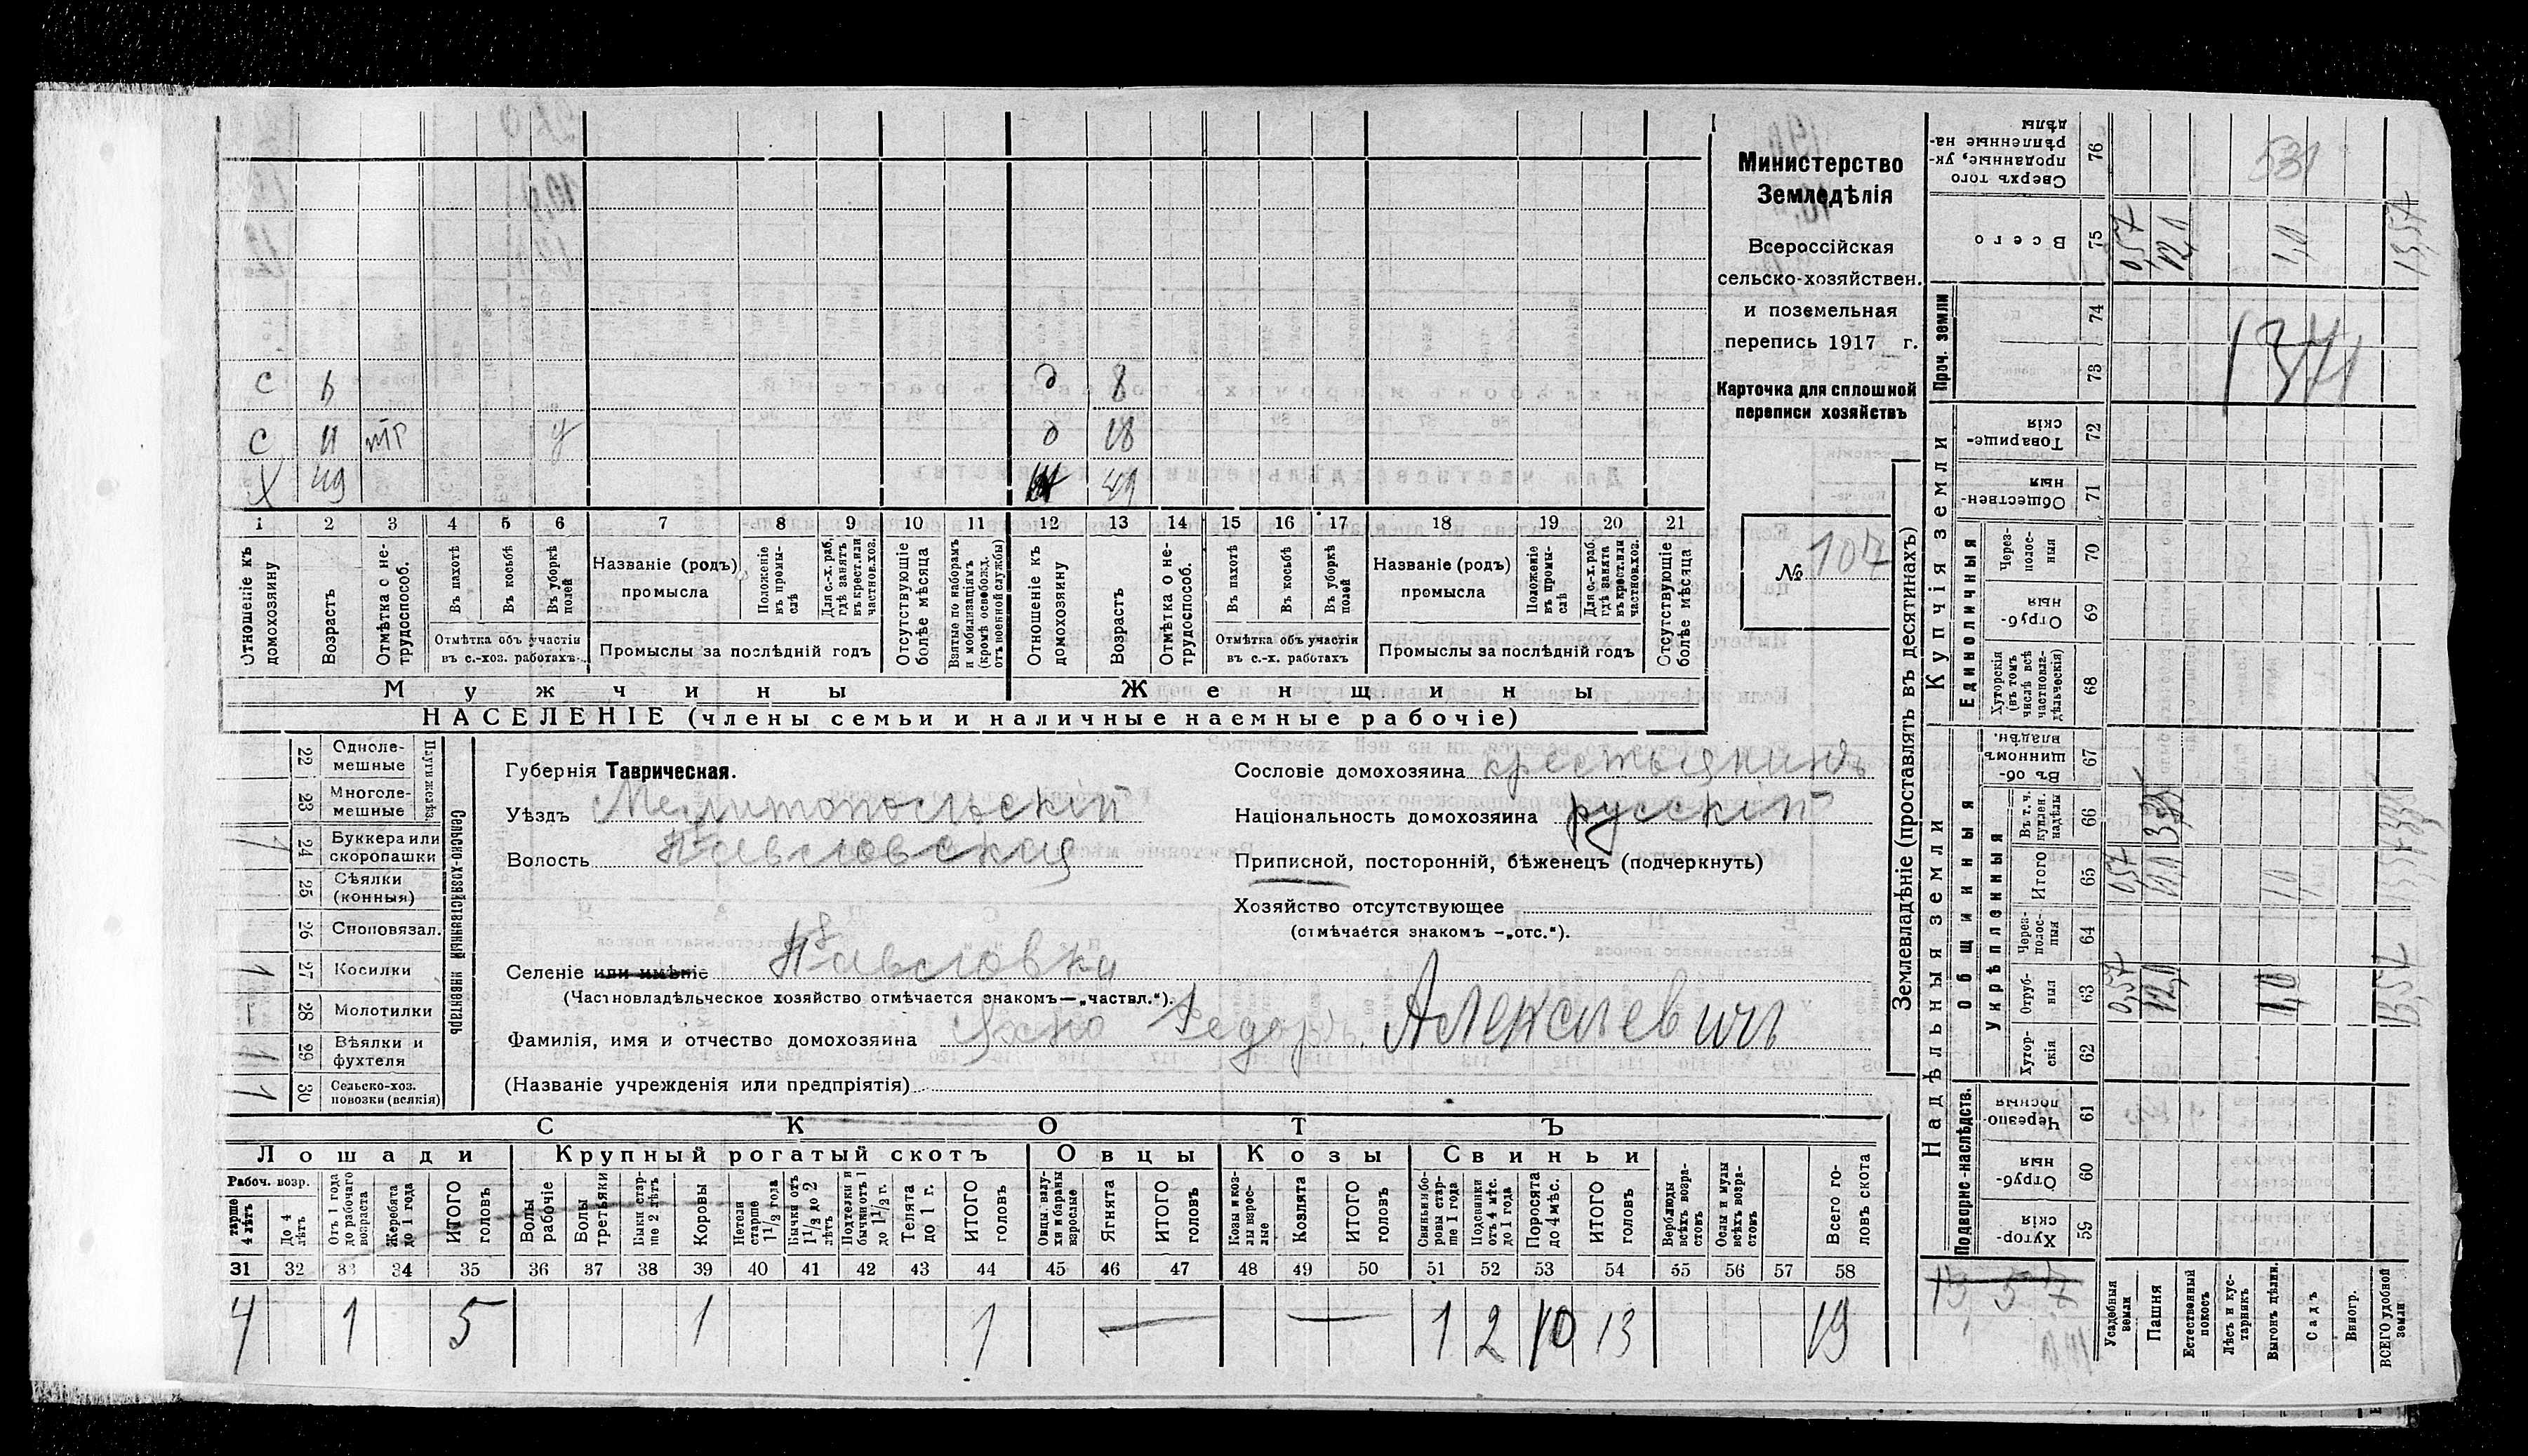 Министерство
Земледѣлія
Всероссійская
сельско-хозяйствен.
и поземельная
перепись 1917 г.
Карточка для сплошной
переписи хозяйствъ
№ 107
с 11 у д 18
Х 49 49
д 8
1 2 3 4 5 6 7 8 9 10 11 12 13 14 15 16 17 18 19 20 21
Отношеніе къ домохозяину
Возрастъ
Отмѣтка о не-трудоспособ.
Въ пахотѣ
Въ косьбѣ
Въ уборкѣ полей
Отмѣтка объ участіи въ с.-хоз. работахъ
Названіе (родъ) промысла
Положеніе въ промы-слѣ
Для с.-х. раб, гдѣ занятъ въ крест. или частнов. хоз.
Промыслы за послѣдній годъ
Отсутствующіе болѣе мѣсяца
Взятые по наборамъ и мобилизаціямъ (кромѣ освобожд. отъ военной службы)
Отношеніе къ домохозяину
Возрастъ
Отмѣтка о не-трудоспособ.
Въ пахотѣ
Въ косьбѣ
Въ уборкѣ полей
Отмѣтка объ участіи въ с.-х. работахъ
Названіе (родъ) промысла
Положеніе въ промы-слѣ
Для с.-х. раб. гдѣ занята въ крест. или частнов. хоз.
Промыслы за послѣдній годъ
Отсутствующіе болѣе мѣсяца
Мужчины Женщины
НАСЕЛЕНІЕ (члены семьи и наличные наемные рабочіе)
Сельско-хозяйственный инвентарь
Плуги желѣз.
22 Одноле-мешные
23 Многоле-мешные
24 Буккера или скоропашки 1
25 Сѣялки (конныя)
26 Сноповязал.
27 Косилки 1
28 Молотилки –
29 Вѣялки и фухтеля 1
30 Сельско-хоз. повозки (всякія) 1
Губернія Таврическая.
Уѣздъ Мелитопольскій
Волость Павловская
Селеніе или имѣніе Павловка
(Частновладѣльческое хозяйство отмѣчается знакомъ—„частвл.“).
Фамилія, имя и отчество домохозяина Яхно Федоръ Алексѣевичъ
(Названіе учрежденія или предпріятія)
Сословіе домохозяина крестьянинъ
Національность домохозяина русскій
Приписной, посторонній, бѣженецъ (подчеркнуть)
Хозяйство отсутствующее
(отмѣчается знакомъ —„отс.“).
СКОТЪ
Лошади Крупный рогатый скотъ Овцы Козы Свиньи
Рабоч. возр.
тарше 4 лѣтъ
До 4 лѣтъ
Отъ 1 года до рабочаго возраста
Жеребята до 1 года
ИТОГО головъ
Волы рабочіе
Волы третьяки
Быки стар-ше 2 лѣтъ
Коровы
Нетели старше 1½ года
Бычки отъ 1½ до 2 лѣтъ
Подтелки и бычки отъ 1 до 1½ г.
Телята до 1 г.
ИТОГО головъ
Овцы, валу-хи и бараны взрослые
Ягнята
ИТОГО головъ
Козы и коз-лы взрос-лые
Козлята
ИТОГО головъ
Свиньи и бо-ровы стар-ше 1 года
Подсвинки отъ 4 мѣс. до 1 года
Поросята до 4 мѣс.
ИТОГО головъ
Верблюды всѣхъ возра-стовъ
Ослы и мулы всѣхъ возра-стовъ
Всего го-ловъ скота
31 32 33 34 35 36 37 38 39 40 41 42 43 44 45 46 47 48 49 50 51 52 53 54 55 56 57 58
4 1 5 1 1 — — 1 2 10 13 19
Землевладѣніе (проставлять въ десятинахъ)
Надѣльныя земли
Купчія земли
Проч. земли
Подворно-наслѣдств.
Общинныя
Укрѣпленныя
Единоличныя
Хутор-скія 59
Отруб-ныя 60
Черезпо-лосныя 61
Хутор-скія 62
Отруб-ныя 63 0,57 12,0 1,0 13,57
Через-полос-ныя 64
Итого 65 0,57
Въ т. ч. куплен. надѣлы 66
Въ об-щинномъ владѣн. 67
Хуторскія (въ томъ числѣ всѣ частновла-дѣльческія) 68
Отруб-ныя 69
Через-полос-ныя 70
Обществен-ныя 71
Товарище-скія 72
73
74
Всего 75 0,57 12,0 1,0 13,57
Сверхъ того проданные, ук-рѣпленные на-дѣлы 76
531
1371
13,57
Усадебныя земли
Пашня
Естественный покосъ
Лѣсъ и кус-тарникъ
Выгонъ цѣлин.
Садъ
Виногр.
ВСЕГО удобной земли